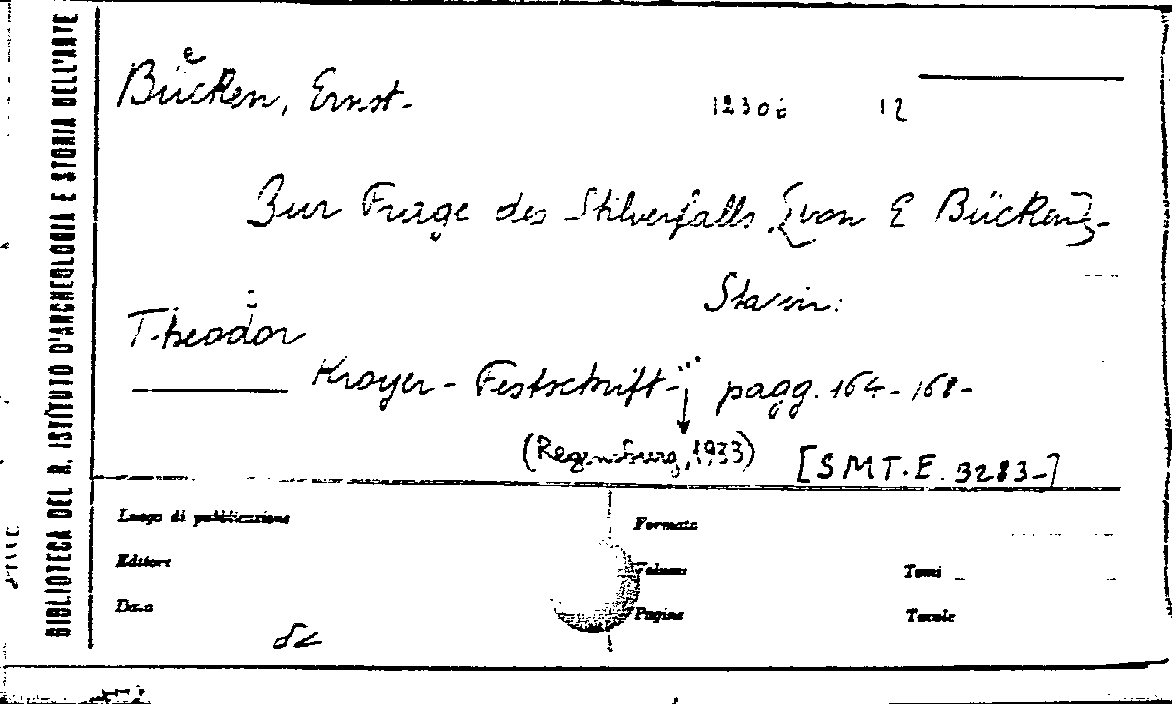 BIBLIOTECA DEL R. ISTITUTO D'ARCHEOLOGIA E STORIA DELL'ARTE
Bücken, Ernst-
12306 12
Zur Frage des Stilverfalls [von E Bücken]-
Sta in:
Theodor
Kroyer - Festschrift - pagg. 164-168-
(Regensburg, 1933) [SMT. E. 3283-]
Luogo di pubblicazione
Formato
Editore
Volume
Tomi
Data
Pagine
Tavole